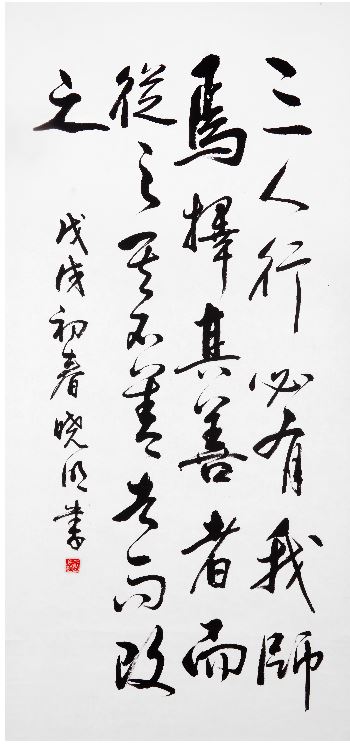 三人行必有我師
焉擇其善者而
從之其不善者而改
之
戊戌初春曉明業